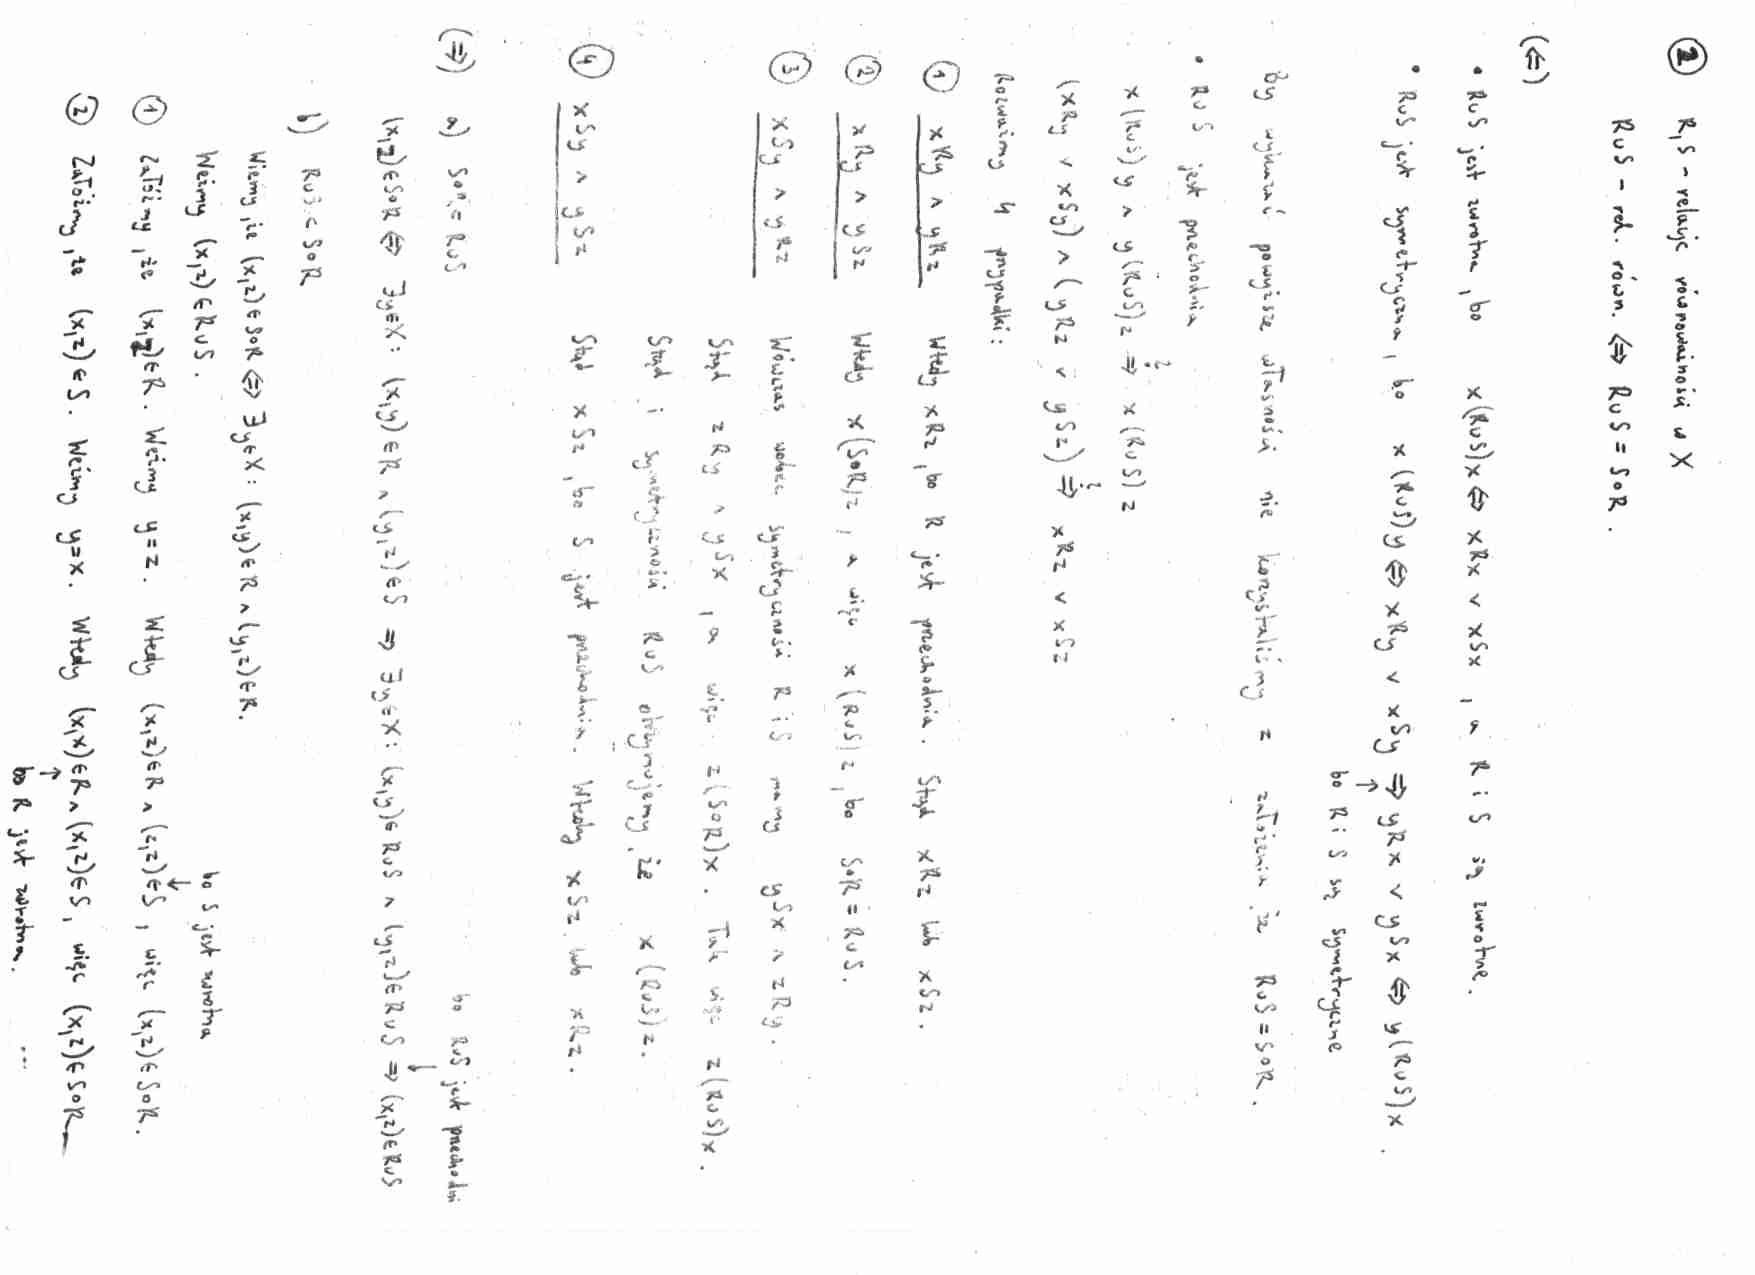 ② R,S - relacje równoważności w X
R∪S - rel. równ. ⇔ R∪S = S∘R.
(⇐)
• R∪S jest zwrotna, bo x(R∪S)x ⇔ xRx ∨ xSx, a R i S są zwrotne.
• R∪S jest symetryczna, bo x(R∪S)y ⇔ xRy ∨ xSy ⇒ yRx ∨ ySx ⇔ y(R∪S)x.
↑ bo R i S są symetryczne
By wykazać powyższe własności nie korzystaliśmy z założenia że R∪S = S∘R.
• R∪S jest przechodnia
x(R∪S)y ∧ y(R∪S)z ⇒? x(R∪S)z
(xRy ∨ xSy) ∧ (yRz ∨ ySz) ⇒? xRz ∨ xSz
Rozważmy 4 przypadki:
① xRy ∧ yRz Wtedy xRz, bo R jest przechodnia. Stąd xRz lub xSz.
② xRy ∧ ySz Wtedy x(S∘R)z, a więc x(R∪S)z, bo S∘R = R∪S.
③ xSy ∧ yRz Wówczas wobec symetryczności R i S mamy ySx ∧ zRy.
Stąd zRy ∧ ySx, a więc z(S∘R)x. Tak więc z(R∪S)x.
Stąd i symetryczności R∪S otrzymujemy, że x(R∪S)z.
④ xSy ∧ ySz Stąd xSz, bo S jest przechodnia. Wtedy xSz lub xRz.
(⇒) a) S∘R ⊂ R∪S
bo R∪S jest przechodni
↓
(x,z)∈S∘R ⇔ ∃y∈X: (x,y)∈R ∧ (y,z)∈S ⇒ ∃y∈X: (x,y)∈R∪S ∧ (y,z)∈R∪S ⇒ (x,z)∈R∪S
b) R∪S ⊂ S∘R
Wiemy, że (x,z)∈S∘R ⇔ ∃y∈X: (x,y)∈R ∧ (y,z)∈R.
Weźmy (x,z)∈R∪S.
bo S jest zwrotna
↓
① Załóżmy, że (x,z)∈R. Weźmy y=z. Wtedy (x,z)∈R ∧ (z,z)∈S, więc (x,z)∈S∘R.
② Załóżmy, że (x,z)∈S. Weźmy y=x. Wtedy (x,x)∈R ∧ (x,z)∈S, więc (x,z)∈S∘R
↑
bo R jest zwrotna. ...